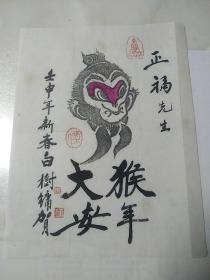 正福先生
猴年
大安
壬申年新春白樹镛贺